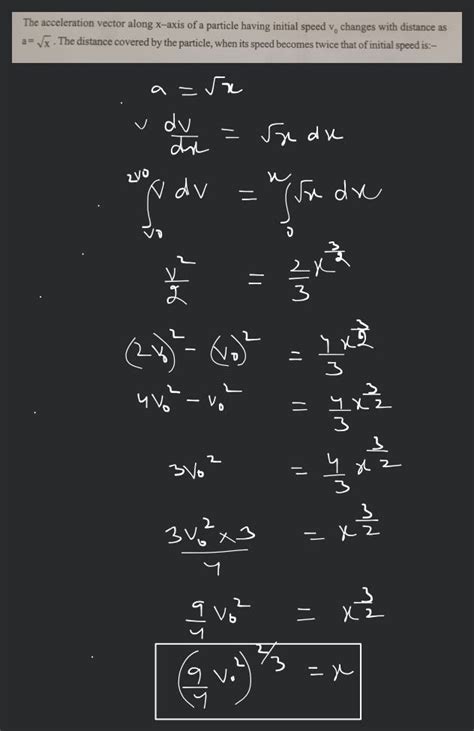 The acceleration vector along x–axis of a particle having initial speed v₀ changes with distance as
a= √x . The distance covered by the particle, when its speed becomes twice that of initial speed is:–
a = √x
v dv/dx = √x dx
∫_{v0}^{2v0} v dv = ∫_0^x √x dx
v²/2 = 2/3 x^{3/2}
(2v₀)² – (v₀)² = 4/3 x^{3/2}
4v₀² – v₀² = 4/3 x^{3/2}
3v₀² = 4/3 x^{3/2}
3v₀² × 3/4 = x^{3/2}
9/4 v₀² = x^{3/2}
(9/4 v₀²)^{2/3} = x